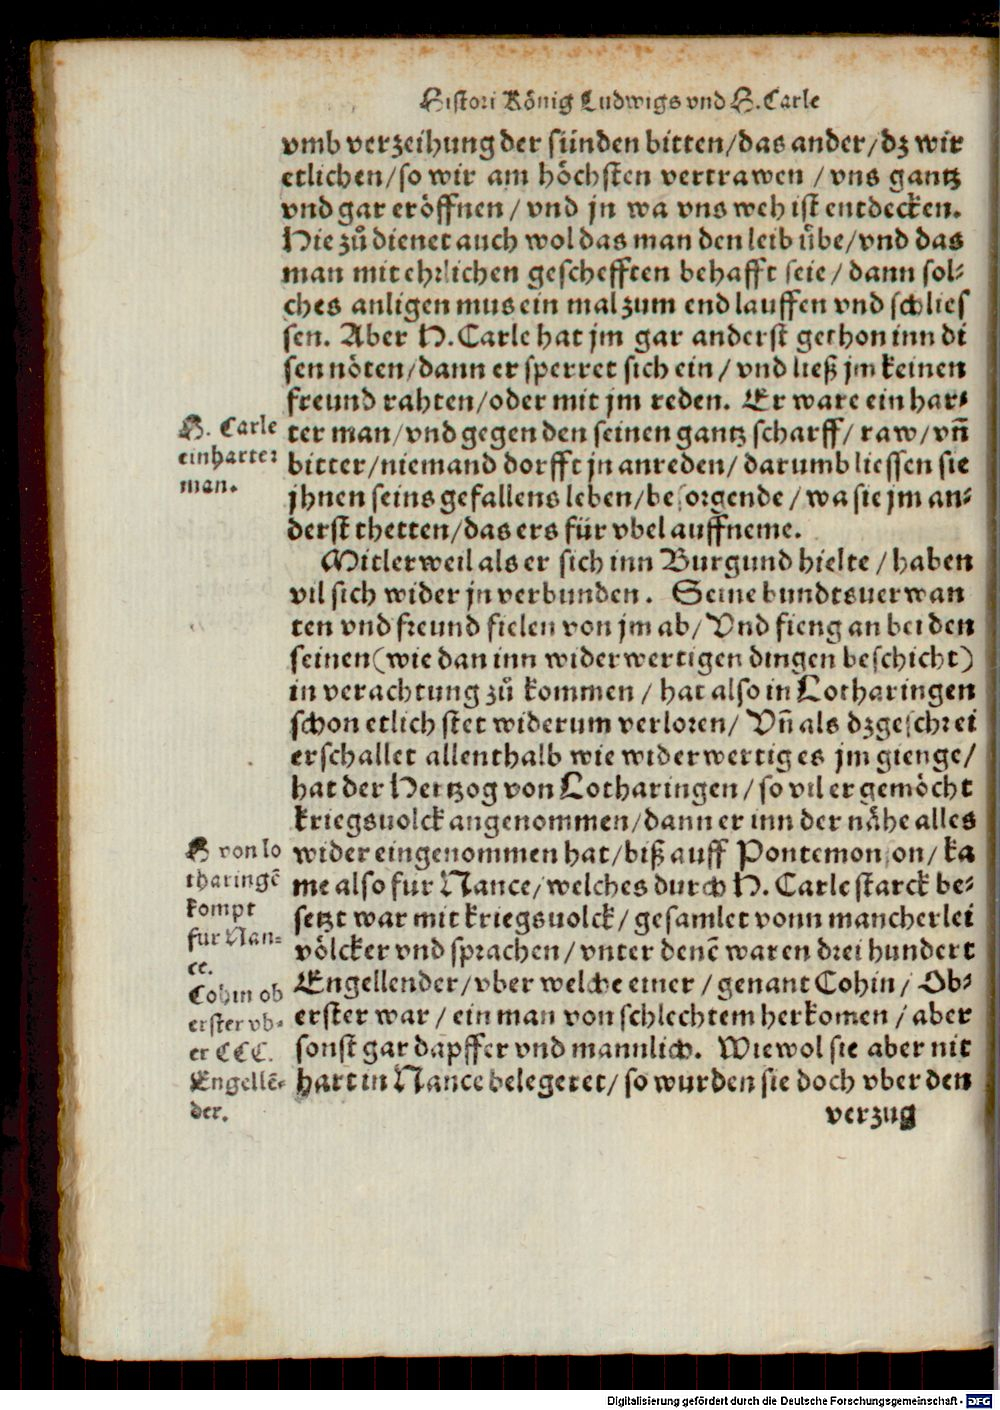 Histori König Ludwigs vnd H. Carle
vmb verzeihung der sünden bitten/das ander/dz wir
etlichen/so wir am höchsten vertrawen/vns gantz
vnd gar eröffnen/vnd jn wa vns weh ist entdecken.
Hie zů dienet auch wol das man den leib übe/vnd das
man mit ehrlichen geschefften behafft seie/dann sol-
ches anligen mus ein mal zum end lauffen vnd schlies
sen. Aber H. Carle hat jm gar anderst gethon inn di
sen nöten/dann er sperret sich ein/vnd ließ jm keinen
freund rahten/oder mit jm reden. Er ware ein har-
H. Carle
ein harter
man.
ter man/vnd gegen den seinen gantz scharff/raw/vñ
bitter/niemand dorfft jn anreden/darumb liessen sie
jhnen seins gefallens leben/besorgende/wa sie jm an-
derst thetten/das ers für vbel auffneme.
Mitlerweil als er sich inn Burgund hielte/haben
vil sich wider jn verbunden. Seine bundtsuerwan
ten vnd freund fielen von jm ab/Vnd fieng an bei den
seinen(wie dan inn widerwertigen dingen beschicht)
in verachtung zů kommen/hat also in Lotharingen
schon etlich stet widerum verloren/Vñ als dz geschrei
erschallet allenthalb wie widerwertig es jm gienge/
hat der Hertzog von Lotharingen/so vil er gemöcht
kriegsuolck angenommen/dann er inn der nähe alles
H von lo
tharingẽ
kompt
fur Nan-
ce.
Cohin ob
erster vb-
er CCC.
Engellẽ-
der.
wider eingenommen hat/biß auff Pontemonson/ka
me also fur Nance/welches durch H. Carle starck be-
setzt war mit kriegsuolck/gesamlet vonn mancherlei
völcker vnd sprachen/vnter denẽ waren drei hundert
Engellender/vber welche einer/genant Cohin/Ob-
erster war/ein man von schlechtem herkomen/aber
sonst gar dapffer vnd mannlich. Wiewol sie aber nit
hart in Nance belegeret/so wurden sie doch vber den
verzug
Digitalisierung gefördert durch die Deutsche Forschungsgemeinschaft - DFG